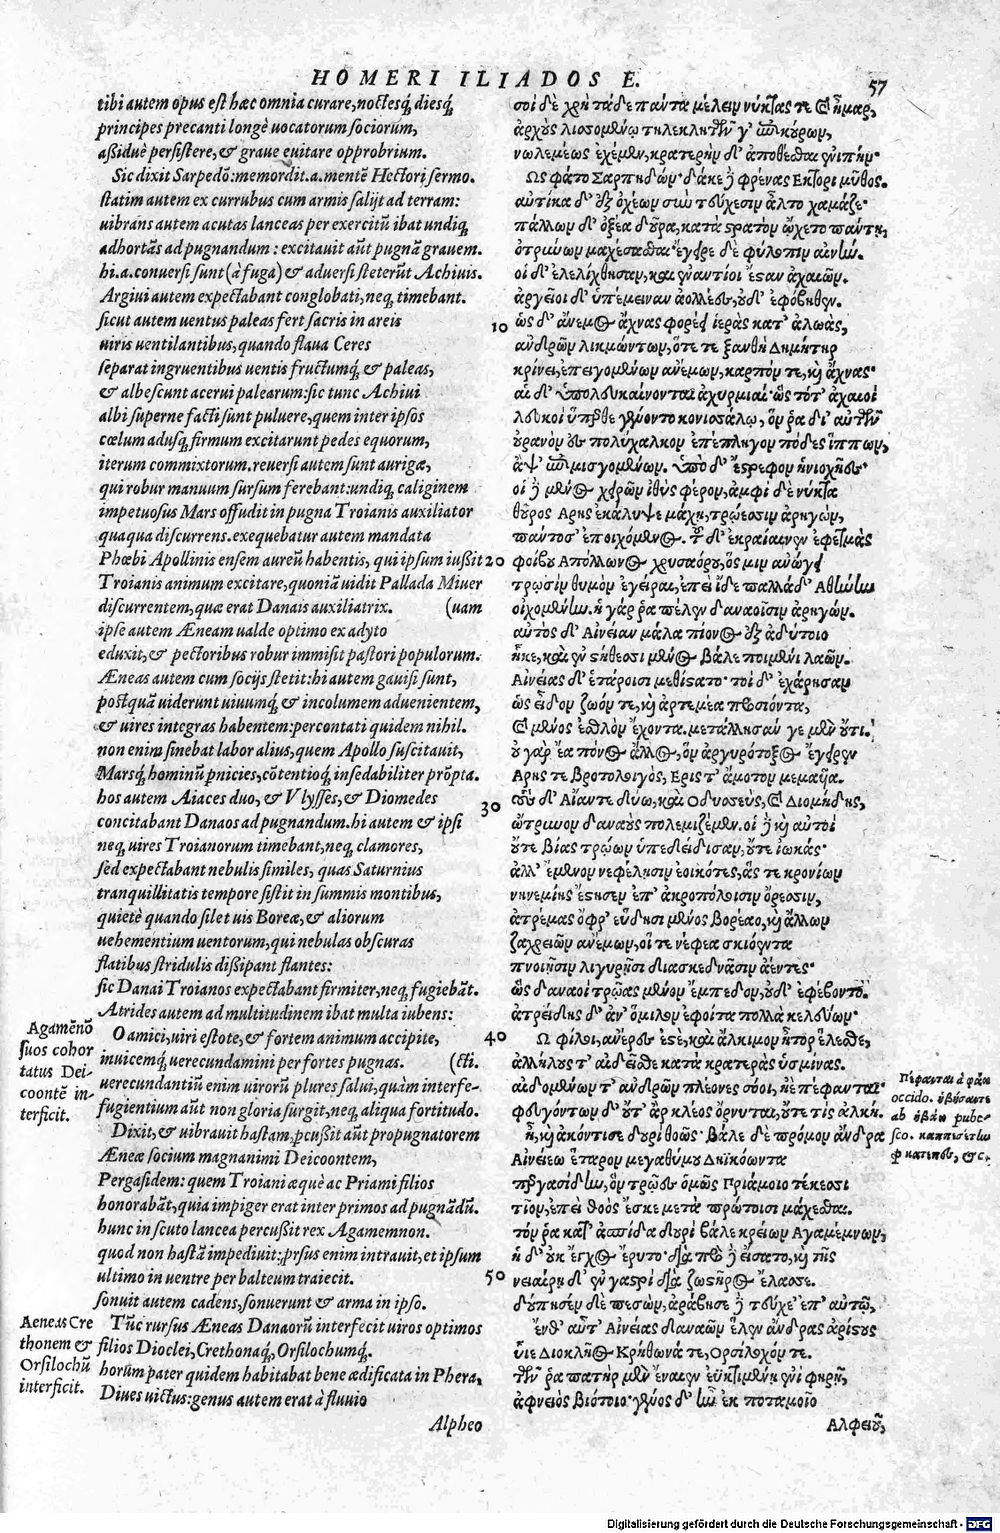 HOMERI ILIADOS E. 57
tibi autem opus est hæc omnia curare, noctesq́, diesq́
principes precanti longè uocatorum sociorum,
aßiduè persistere, & graue euitare opprobrium.
Sic dixit Sarpedō: memordit.a. mentē Hectori sermo.
statim autem ex curribus cum armis salijt ad terram:
uibrans autem acutas lanceas per exercitū ibat undiq,
adhortās ad pugnandum: excitauit aūt pugnā grauem.
hi.a. conuersi sunt (à fuga) & aduersi steterūt Achiuis.
Argiui autem expectabant conglobati, neq, timebant.
sicut autem uentus paleas fert sacris in areis
uiris uentilantibus, quando flaua Ceres
separat ingruentibus uentis fructumq́, & paleas,
& albescunt acerui palearum: sic tunc Achiui
albi superne facti sunt puluere, quem inter ipsos
cœlum adusq, firmum excitarunt pedes equorum,
iterum commixtorum. reuersi autem sunt aurigæ,
qui robur manuum sursum ferebant: undiq, caliginem
impetuosus Mars offudit in pugna Troianis auxiliator
quaqua discurrens. exequebatur autem mandata
Phœbi Apollinis ensem aureū habentis, qui ipsum iußit
Troianis animum excitare, quoniā uidit Pallada Miner
discurrentem, quæ erat Danais auxiliatrix. (uam
ipse autem Æneam ualde optimo ex adyto
eduxit, & pectoribus robur immisit pastori populorum.
Æneas autem cum socijs stetit: hi autem gauisi sunt,
postquā uiderunt uiuumq́, & incolumem aduenientem,
& uires integras habentem: percontati quidem nihil.
non enim sinebat labor alius, quem Apollo suscitauit,
Marsq́, hominū pnicies, cōtentioq́, insedabiliter prōpta.
hos autem Aiaces duo, & Vlysses, & Diomedes
concitabant Danaos ad pugnandum. hi autem & ipsi
neq, uires Troianorum timebant, neq, clamores,
sed expectabant nebulis similes, quas Saturnius
tranquillitatis tempore sistit in summis montibus,
quietè quando silet uis Boreæ, & aliorum
uehementium uentorum, qui nebulas obscuras
flatibus stridulis dißipant flantes:
sic Danai Troianos expectabant firmiter, neq, fugiebāt.
Atrides autem ad multitudinem ibat multa iubens:
O amici, uiri estote, & fortem animum accipite,
inuicemq́, uerecundamini per fortes pugnas. (cti.
uerecundantiū enim uirorū plures salui, quàm interfe-
fugientium aūt non gloria surgit, neq, aliqua fortitudo.
Dixit, & uibrauit hastam, pcußit aūt propugnatorem
Æneæ socium magnanimi Deicoontem,
Pergasidem: quem Troiani æquè ac Priami filios
honorabāt, quia impiger erat inter primos ad pugnādū.
hunc in scuto lancea percußit rex Agamemnon.
quod non hastā impediuit: prsus enim intrauit, et ipsum
ultimo in uentre per balteum traiecit.
sonuit autem cadens, sonuerunt & arma in ipso.
Tūc rursus Æneas Danaorū interfecit uiros optimos
filios Dioclei, Crethonaq́, Orsilochumq́.
horum pater quidem habitabat bene ædificata in Phera,
Diues uictus: genus autem erat à fluuio
Alpheo
Agamēnō
suos cohor
tatus Dei-
coontē in-
terficit.
Aeneas Cre
thonem &
Orsilochū
interficit.
10
20
30
40
50
σοὶ δὲ χρὴ τάδε πάντα μέλειν νύκτας τε καὶ ἦμαρ,
ἀρχοὺς λισσομένῳ τηλεκλητῶν γ' ἐπικούρων,
νωλεμέως ἐχέμεν, κρατερὴν δ' ἀποθέσθαι ἐνιπήν·
Ως φάτο Σαρπηδών· δάκε δὲ φρένας Εκτορι μῦθος.
αὐτίκα δ' ἐξ ὀχέων σὺν τεύχεσιν ἆλτο χαμᾶζε·
πάλλων δ' ὀξέα δοῦρα, κατὰ στρατὸν ᾤχετο πάντη,
ὀτρύνων μαχέσασθαι· ἔγειρε δὲ φύλοπιν αἰνήν.
οἱ δ' ἐλελίχθησαν, καὶ ἐναντίοι ἔσαν ἀχαιῶν.
ἀργεῖοι δ' ὑπέμειναν ἀολλέες, οὐδ' ἐφόβηθεν.
ὡς δ' ἄνεμος ἄχνας φορέει ἱερὰς κατ' ἀλωὰς,
ἀνδρῶν λικμώντων, ὅτε τε ξανθὴ Δημήτηρ
κρίνει, ἐπειγομένων ἀνέμων, καρπόν τε, καὶ ἄχνας·
αἱ δ' ὑπολευκαίνονται ἀχυρμιαί· ὣς τότ' ἀχαιοὶ
λευκοὶ ὕπερθε γένοντο κονισσάλῳ, ὅν ῥα δι' αὐτῶν
οὐρανὸν ἐς πολύχαλκον ἐπέπληγον πόδες ἵππων,
ἂψ' ἐπιμισγομένων. ὑπὸ δ' ἔστρεφον ἡνιοχῆες·
οἱ δὲ μένος χειρῶν ἰθὺς φέρον, ἀμφὶ δὲ νύκτα
θοῦρος Αρης ἐκάλυψε μάχῃ, τρώεσσιν ἀρήγων,
πάντοσ' ἐποιχόμενος. τοῦ δ' ἐκραίαινεν ἐφετμὰς
φοίβου Απόλλωνος χρυσαόρου, ὅς μιν ἀνώγει
τρωσὶν θυμὸν ἐγεῖραι, ἐπεὶ ἴδε παλλάδ' Αθήνην
οἰχομένην. ἡ γάρ ῥα πέλεν δαναοῖσιν ἀρηγών.
αὐτὸς δ' Αἰνείαν μάλα πίονος ἐξ ἀδύτοιο
ἧκε, καὶ ἐν στήθεσσι μένος βάλε ποιμένι λαῶν.
Αἰνείας δ' ἑτάροισι μεθίστατο· τοὶ δ' ἐχάρησαν
ὡς εἶδον ζωόν τε, καὶ ἀρτεμέα προσιόντα,
καὶ μένος ἐσθλὸν ἔχοντα. μετάλλησάν γε μὲν οὔτι.
οὐ γὰρ ἔα πόνος ἄλλος, ὃν ἀργυρότοξος ἔγειρεν
Αρης τε βροτολοιγὸς, Ερις τ' ἄμοτον μεμαυῖα.
τοὺς δ' Αἴαντε δύω, καὶ Οδυσσεὺς, καὶ Διομήδης,
ὤτρυνον δαναοὺς πολεμιζέμεν. οἱ δὲ καὶ αὐτοὶ
οὔτε βίας τρώων ὑπεδείδισαν, οὔτε ἰωκάς·
ἀλλ' ἔμενον νεφέλῃσιν ἐοικότες, ἅς τε κρονίων
νηνεμίης ἔστησεν ἐπ' ἀκροπόλοισιν ὄρεσσιν,
ἀτρέμας ὄφρ' εὕδῃσι μένος βορέαο, καὶ ἄλλων
ζαχρειῶν ἀνέμων, οἵ τε νέφεα σκιόεντα
πνοιῇσιν λιγυρῇσι διασκεδνᾶσιν ἀέντες·
ὣς δαναοὶ τρῶας μένον ἔμπεδον, οὐδ' ἐφέβοντο.
ἀτρείδης δ' ἀν' ὅμιλον ἐφοίτα πολλὰ κελεύων·
Ω φίλοι, ἀνέρες ἐστὲ, καὶ ἄλκιμον ἦτορ ἕλεσθε,
ἀλλήλους τ' αἰδεῖσθε κατὰ κρατερὰς ὑσμίνας.
αἰδομένων τ' ἀνδρῶν πλέονες σόοι, ἠὲ πέφανται·
φευγόντων δ' οὔτ' ἂρ κλέος ὄρνυται, οὔτε τὶς ἀλκή.
ἦ, καὶ ἀκόντισε δουρὶ θοῶς· βάλε δὲ πρόμον ἄνδρα
Αἰνείεω ἕταρον μεγαθύμου Δηϊκόωντα
περγασίδην, ὃν τρῶες ὁμῶς Πριάμοιο τέκεσσι
τῖον, ἐπεὶ θοὸς ἔσκε μετὰ πρώτοισι μάχεσθαι.
τόν ῥα κατ' ἀσπίδα δουρὶ βάλε κρείων Αγαμέμνων,
ἡ δ' οὐκ ἔγχος ἔρυτο· διὰ πρὸ δὲ εἴσατο, καὶ τῆς
νειαίρῃ δ' ἐν γαστρὶ διὰ ζωστῆρος ἔλασσε.
δούπησεν δὲ πεσὼν, ἀράβησε δὲ τεύχε' ἐπ' αὐτῷ.
ἔνθ' αὖτ' Αἰνείας δαναῶν ἕλεν ἄνδρας ἀρίστους
υἷε Διοκλῆος Κρήθωνά τε, Ορσίλοχόν τε.
τῶν ῥα πατὴρ μὲν ἔναιεν ἐϋκτιμένῃ ἐνὶ φηρῇ,
ἀφνειὸς βιότοιο· γένος δ' ἦν ἐκ ποταμοῖο
Αλφειοῦ,
Πέφανται à φάω
occido.
ab ἡβάω pube-
sco.
Digitalisierung gefördert durch die Deutsche Forschungsgemeinschaft - DFG